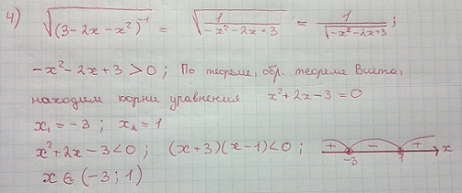 4) √((3-2x-x²)⁻¹) = √(1/(-x²-2x+3)) = 1/√(-x²-2x+3) ;
-x²-2x+3>0 ; По теореме, обр. теореме Виета,
находим корни уравнения x²+2x-3=0
x₁=-3 ; x₂=1
x²+2x-3<0 ; (x+3)(x-1)<0 ; + -3 - 1 + x
x∈(-3;1)